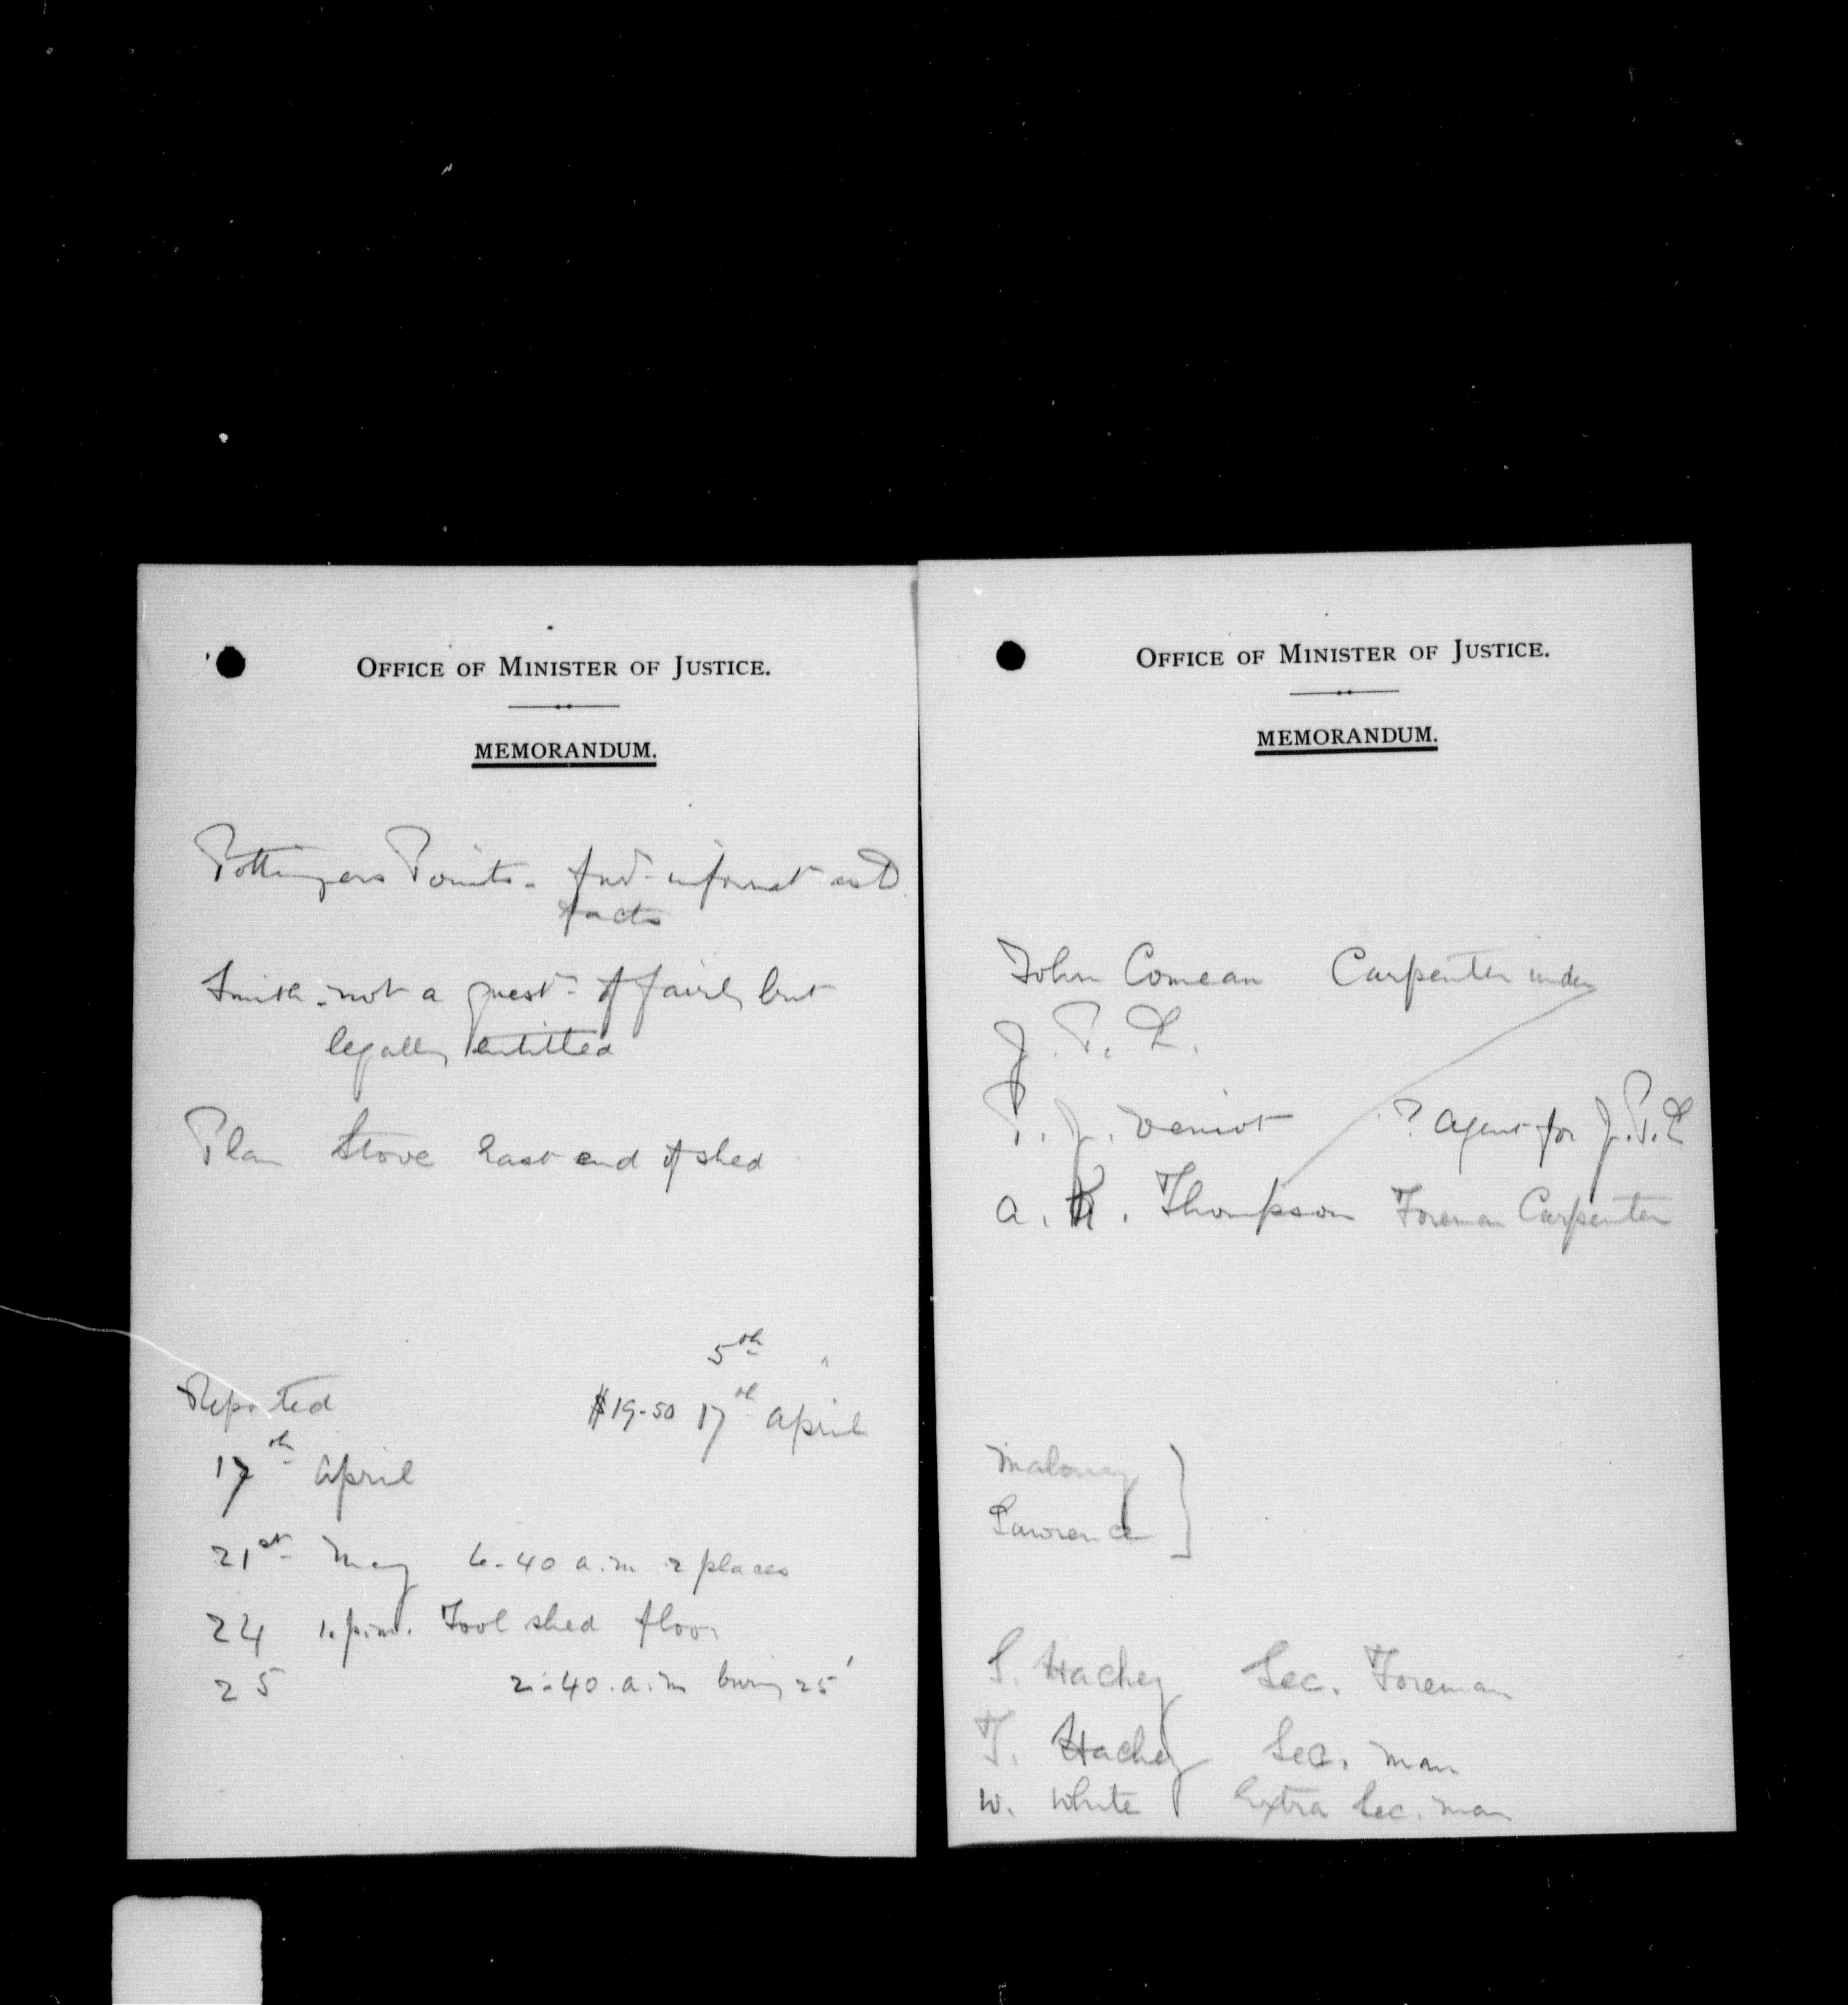 OFFICE OF MINISTER OF JUSTICE.
MEMORANDUM.
Pottingers Points -
facts
Smith - not a quest= of fairly but
legally entitled
Plan Stove East end of shed
5th "
Reported $19-50 17th April
17th April
21st May 6-40 a.m 2 places
24 1.p.m. Tool shed floor
25 2.40.a.m 25'
OFFICE OF MINISTER OF JUSTICE.
MEMORANDUM.
John Comeau Carpenter under
J. P. L.
P. J. Veniot ? Agent for J. P. L
A. K. Thompson Foreman Carpenter
Maloney
Lawrence
S. Hachey Sec. Foreman
T. Hachey Sec. man
W. White Extra Sec. man